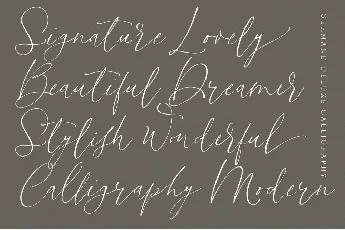 Signature Lovely
Beautiful Dreamer
Stylish Wonderful
Calligraphy Modern
CALLIGRAPHY